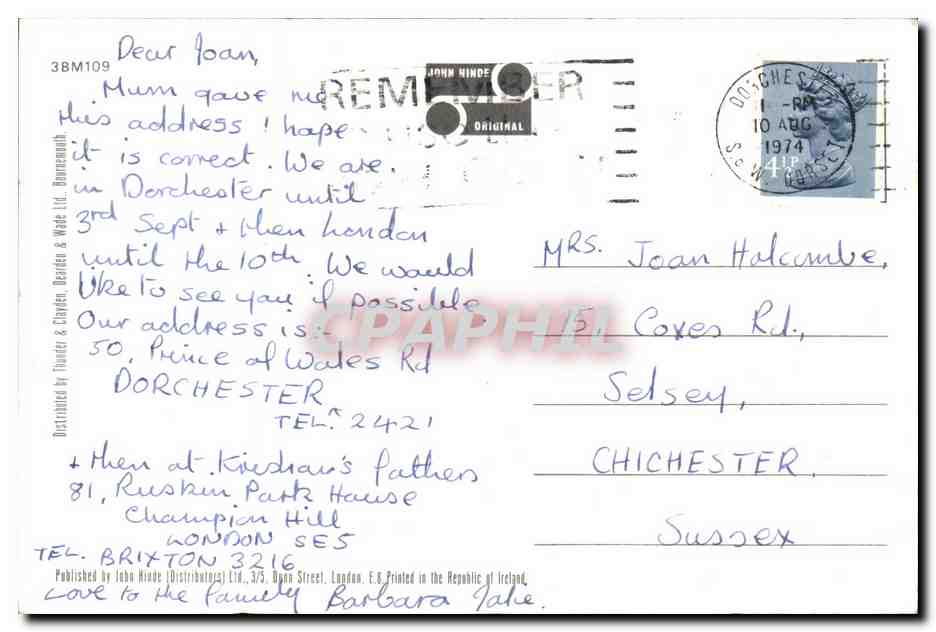 3BM109
Dear Joan,
Mum gave me
this address I hope
it is correct. We are
in Dorchester until
3rd Sept + then London
until the 10th. We would
like to see you if possible
Our address is:-
50, Prince of Wales Rd
DORCHESTER
TEL. 2421
+ then at fathers
81, Ruskin Park House
Champion Hill
LONDON SE5
TEL. BRIXTON 3216
Love to the family Barbara
Published by John Hinde (Distributors) Ltd., 3/5, Dunn Street, London, E.8 Printed in the Republic of Ireland.
Distributed by Thunder & Clayden, Dearden & Wade Ltd. Bournemouth.
REMEMBER
JOHN HINDE
ORIGINAL
DORCHESTER
PM
10 AUG
1974
DORSET
4½P
MRS. Joan Holcombe,
15, Coxes Rd.,
Selsey,
CHICHESTER.
Sussex
CPAPHIL